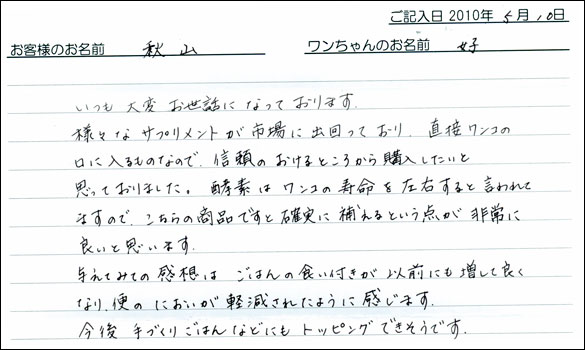 ご記入日 2010年 5月10日
お客様のお名前 秋山 ワンちゃんのお名前 好
いつも 大変 お世話に なって おります.
様々な サプリメントが 市場に 出回って おり、直接ワンコの
口に入るものなので、信頼の おけるところから 購入したいと
思っておりました。酵素は ワンコの 寿命を 左右すると 言われて
ますので、こちらの商品ですと 確実に 補えるという点が 非常に
良いと思います.
与えてみての 感想は ごはんの食い付きが 以前にも 増して良く
なり、便の においが 軽減されたように 感じます.
今後 手づくりごはんなどにも トッピング できそうです.